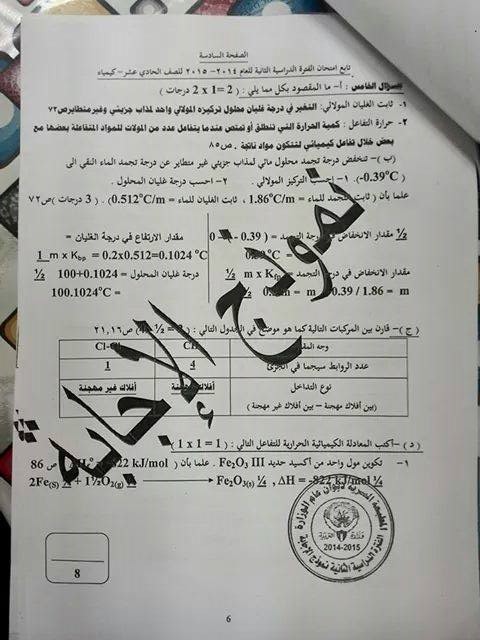 الصفحة السادسة
تابع امتحان الفترة الدراسية الثانية للعام ٢٠١٤- ٢٠١٥ للصف الحادي عشر- كيمياء
السؤال الخامس : أ- ما المقصود بكل مما يلي : ( 2 = 1 x 2 درجات )
١- ثابت الغليان المولالي: التغير في درجة غليان محلول تركيزه المولالي واحد لمذاب جزيئي وغير متطاير ص٧٢
٢- حرارة التفاعل : كمية الحرارة التي تنطلق أو تمتص عندما يتفاعل عدد من المولات للمواد المتفاعلة بعضها مع
بعض خلال تفاعل كيميائي لتتكون مواد ناتجة . ص٨٥
(ب)- تنخفض درجة تجمد محلول مائي لمذاب جزيئي غير متطاير عن درجة تجمد الماء النقي الى
(-0.39°C) . ١- احسب التركيز المولالي . ٢- احسب درجة غليان المحلول .
علما بأن ( ثابت التجمد للماء = 1.86°C/m ، ثابت الغليان للماء = 0.512°C/m) . ( 3 درجات ) ص٧٢
½ مقدار الانخفاض في درجة التجمد = ( 0.39 - ) - 0
مقدار الارتفاع في درجة الغليان =
= 0.39 °C
1 m x Kbp = 0.2x0.512=0.1024 °C
مقدار الانخفاض في درجة التجمد = m x Kfp ½
درجة غليان المحلول = 100+0.1024 ½
m = 0.39 / 1.86 = m ½
= 100.1024°C
( ج )- قارن بين المركبات التالية كما هو موضح في الجدول التالي : ص ٢١,١٦
وجه المقارنة CH Cl-Cl
عدد الروابط سيجما في الجزئ 4 1
نوع التداخل أفلاك مهجنة أفلاك غير مهجنة
(بين أفلاك مهجنة – بين أفلاك غير مهجنة )
( د )- أكتب المعادلة الكيميائية الحرارية للتفاعل التالي : ( 1 = 1 x 1 )
١- تكوين مول واحد من أكسيد حديد Fe2O3 III . علما بأن ( 822 kJ/mol ) ص 86
2Fe(S) + 1½O2(g) → Fe2O3(s) ¼ , ΔH = -822 kJ/mol ¼
نموذج الإجابة
2014-2015
الفترة الدراسية الثانية نموذج الإجابة
8
6